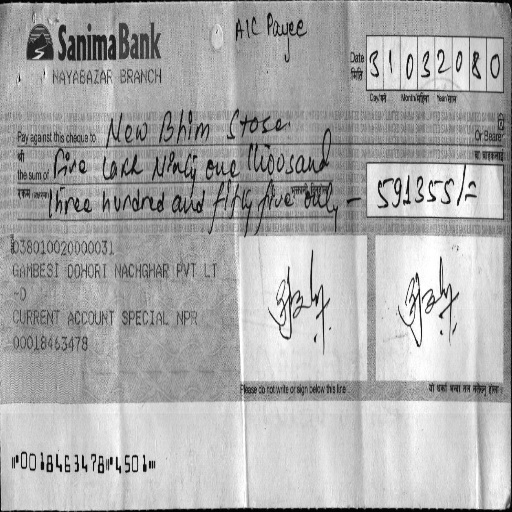 A/C Payee
Sanima Bank
NAYABAZAR BRANCH
Date
मिति
31032080
Day/गते Month/महिना Year/साल
Pay against this cheque to New Bhim Store
Or Bearer
श्री
वा वाहकलाई
the sum of Five Lakh Ninty one thousand
रकम three hundred and fifty five only –
591355/=
038010020000031
GAMBESI DOHORI NACHGHAR PVT LT
-D
CURRENT ACCOUNT SPECIAL NPR
00018463478
Please do not write or sign below this line
⑈0018463478⑈4501⑈